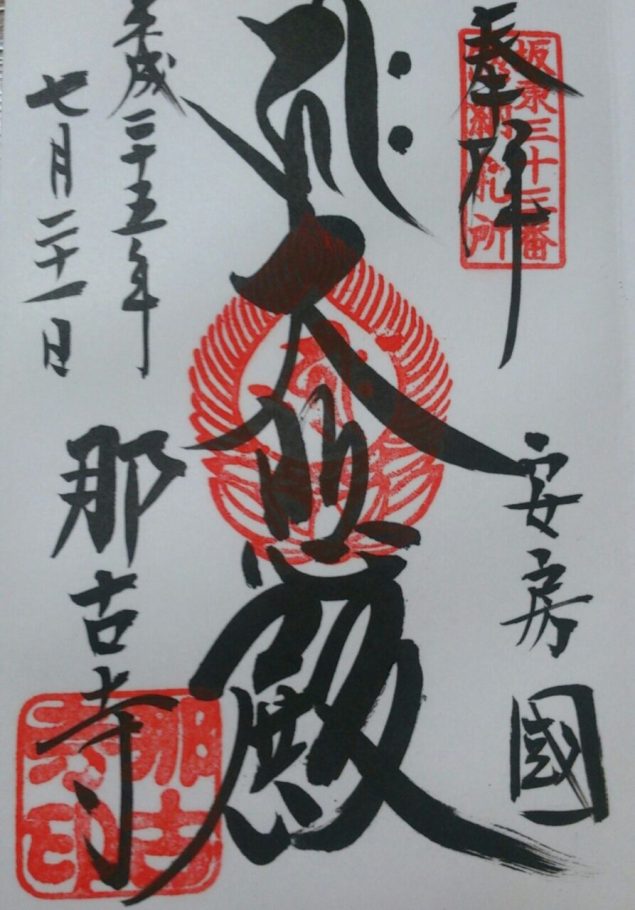 奉拝
坂東三十三番
納札所
安房國
大悲殿
平成二十五年
七月二十一日
那古寺
那古
寺印